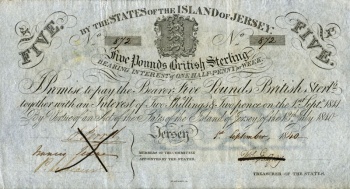 BY THE STATES OF THE ISLAND OF JERSEY.
FIVE. FIVE.
No 872 No 872
Five Pounds British Sterling
BEARING INTEREST OF ONE HALF-PENNY PR. WEEK.
I Promise to pay the Bearer, Five Pounds British Sterlg.
together with an Interest of Two Shillings & Two pence on the 1st Septr. 1841
By Virtue of an Act of the States of the Island of Jersey of the May 1840
Jersey 1st September 1840
MEMBERS OF THE COMMITTEE
APPOINTED BY THE STATES.
TREASURER OF THE STATES.